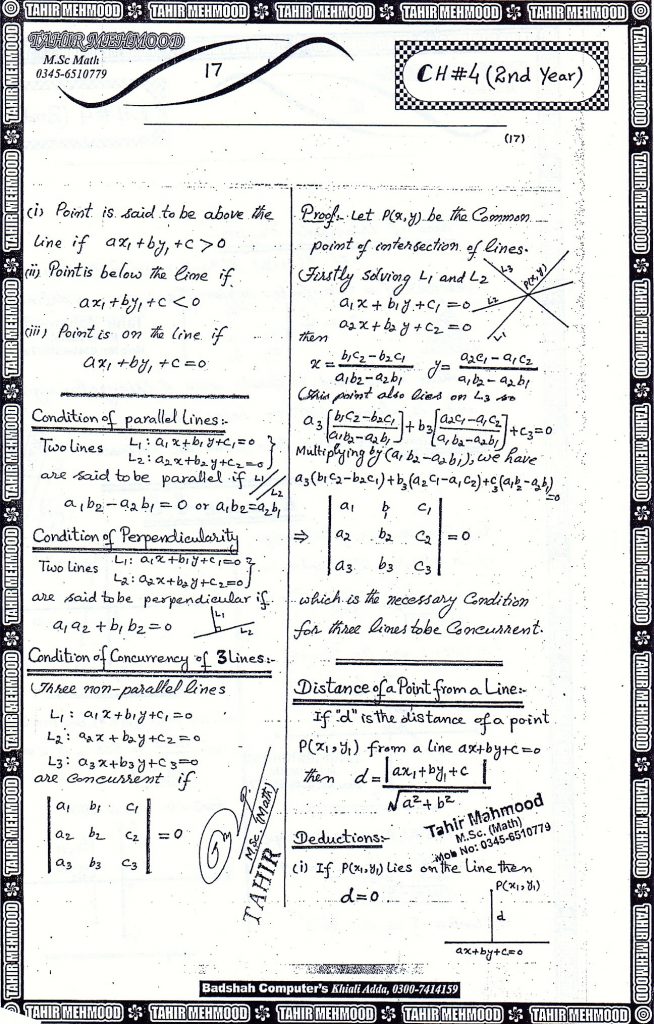 TAHIR MEHMOOD TAHIR MEHMOOD TAHIR MEHMOOD TAHIR MEHMOOD TAHIR MEHMOOD
TAHIR MEHMOOD
M.Sc Math
0345-6510779
17
CH #4 (2nd Year)
(17)
(i) Point is said to be above the
line if ax₁+by₁+c>0
(ii) Point is below the line if
ax₁+by₁+c<0
(iii) Point is on the line if
ax₁+by₁+c=0
Condition of parallel Lines:-
Two Lines L₁: a₁x+b₁y+c₁=0
L₂: a₂x+b₂y+c₂=0
are said to be parallel if L₁ L₂
a₁b₂-a₂b₁=0 or a₁b₂=a₂b₁
Condition of Perpendicularity
Two Lines L₁: a₁x+b₁y+c₁=0
L₂: a₂x+b₂y+c₂=0
are said to be perpendicular if
a₁a₂+b₁b₂=0 L₁ L₂
Condition of Concurrency of 3 Lines:-
Three non-parallel lines
L₁: a₁x+b₁y+c₁=0
L₂: a₂x+b₂y+c₂=0
L₃: a₃x+b₃y+c₃=0
are concurrent if
| a₁ b₁ c₁ |
| a₂ b₂ c₂ | = 0
| a₃ b₃ c₃ |
M.Sc. (Math)
TAHIR
Proof:- Let P(x,y) be the Common
point of intersection of lines.
Firstly solving L₁ and L₂
a₁x+b₁y+c₁=0
a₂x+b₂y+c₂=0
L₃ P(x,y)
L₂
L₁
then
x = (b₁c₂-b₂c₁)/(a₁b₂-a₂b₁) y = (a₂c₁-a₁c₂)/(a₁b₂-a₂b₁)
This point also lies on L₃ so
a₃[(b₁c₂-b₂c₁)/(a₁b₂-a₂b₁)]+b₃[(a₂c₁-a₁c₂)/(a₁b₂-a₂b₁)]+c₃=0
Multiplying by (a₁b₂-a₂b₁), we have
a₃(b₁c₂-b₂c₁)+b₃(a₂c₁-a₁c₂)+c₃(a₁b₂-a₂b₁)=0
| a₁ b₁ c₁ |
⇒ | a₂ b₂ c₂ | = 0
| a₃ b₃ c₃ |
which is the necessary Condition
for three lines to be Concurrent.
Distance of a Point from a Line:-
If "d" is the distance of a point
P(x₁,y₁) from a line ax+by+c=0
then d = |ax₁+by₁+c| / √(a²+b²)
Tahir Mahmood
M.Sc. (Math)
Mob No: 0345-6510779
Deductions:-
(i) If P(x₁,y₁) Lies on the Line then
d=0
P(x₁,y₁)
d
ax+by+c=0
Badshah Computer's Khiali Adda, 0300-7414159
TAHIR MEHMOOD TAHIR MEHMOOD TAHIR MEHMOOD TAHIR MEHMOOD TAHIR MEHMOOD
TAHIR MEHMOOD TAHIR MEHMOOD TAHIR MEHMOOD TAHIR MEHMOOD TAHIR MEHMOOD TAHIR MEHMOOD TAHIR MEHMOOD TAHIR MEHMOOD
TAHIR MEHMOOD TAHIR MEHMOOD TAHIR MEHMOOD TAHIR MEHMOOD TAHIR MEHMOOD TAHIR MEHMOOD TAHIR MEHMOOD TAHIR MEHMOOD